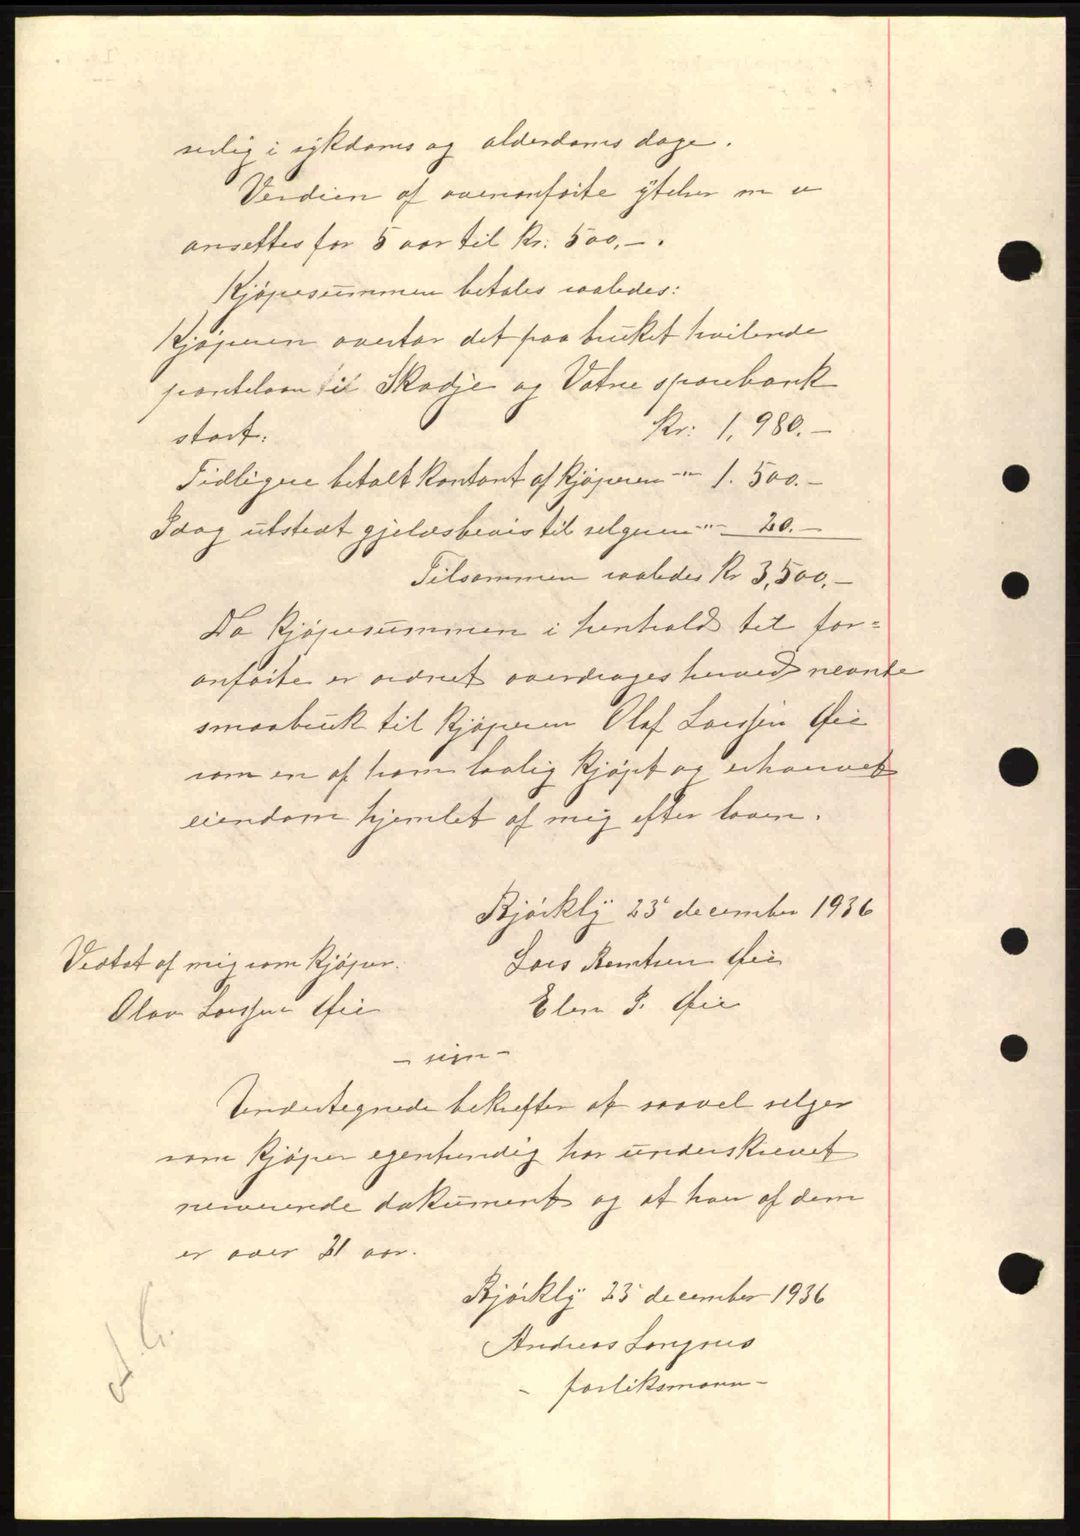 serlig i sykdoms og alderdoms dage.
Verdien af ovenanførte ytelser m v
ansettes for 5 aar til Kr: 500.-.
Kjøpesummen betales saaledes:
Kjøperen overtar det paa bruket hvilende
pantelaan til Skodje og Vatne sparebank
stort: Kr: 1,980.-
Tidligere betalt kontant af kjøperen -"- 1.500.-
Idag utstedt gjeldsbevis til selgeren -"- 20.-
Tilsammen saaledes Kr 3,500.-
Da kjøpesummen i henhold til for=
anførte er ordnet overdrages herved nevnte
smaabruk til kjøperen Olaf Larssen Øie
som en af ham lovlig kjøpt og erhvervet
eiendom hjemlet af mig efter loven.
Bjørkly 23 december 1936
Vedtat af mig som kjøper. Lars Berntsen Øie
Olav Larssen Øie Elen P. Øie
- sign -
Undertegnede bekrefter at saavel selger
som kjøper egenhendig har underskrevet
nerverende dokument og at hver af dem
er over 21 aar.
Bjørkly 23 december 1936
Andreas Langnes
- forliksmann -